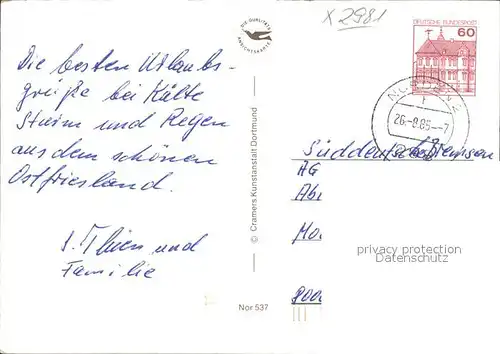 Die besten Urlaubs-
grüße bei Kälte
Sturm und Regen
aus dem schönen
Ostfriesland.
Thien und
Familie
DIE QUALITÄTS
ANSICHTSKARTE
© Cramers Kunstanstalt Dortmund
Nor 537
X 2981
DEUTSCHE BUNDESPOST
60
26.-8.85--7
Süddeutsche Bremsen
AG
Ab
Mo
privacy protection
Datenschutz
800